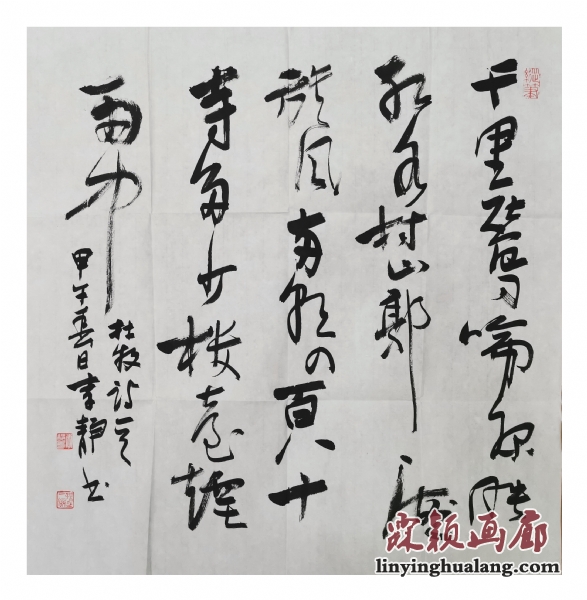 千里鶯啼綠映
紅水村山郭酒
旗风南朝四百八十
寺多少樓臺煙
雨中
杜牧诗一首
甲午春日李靜书
霖颖画廊
linyinghualang.com